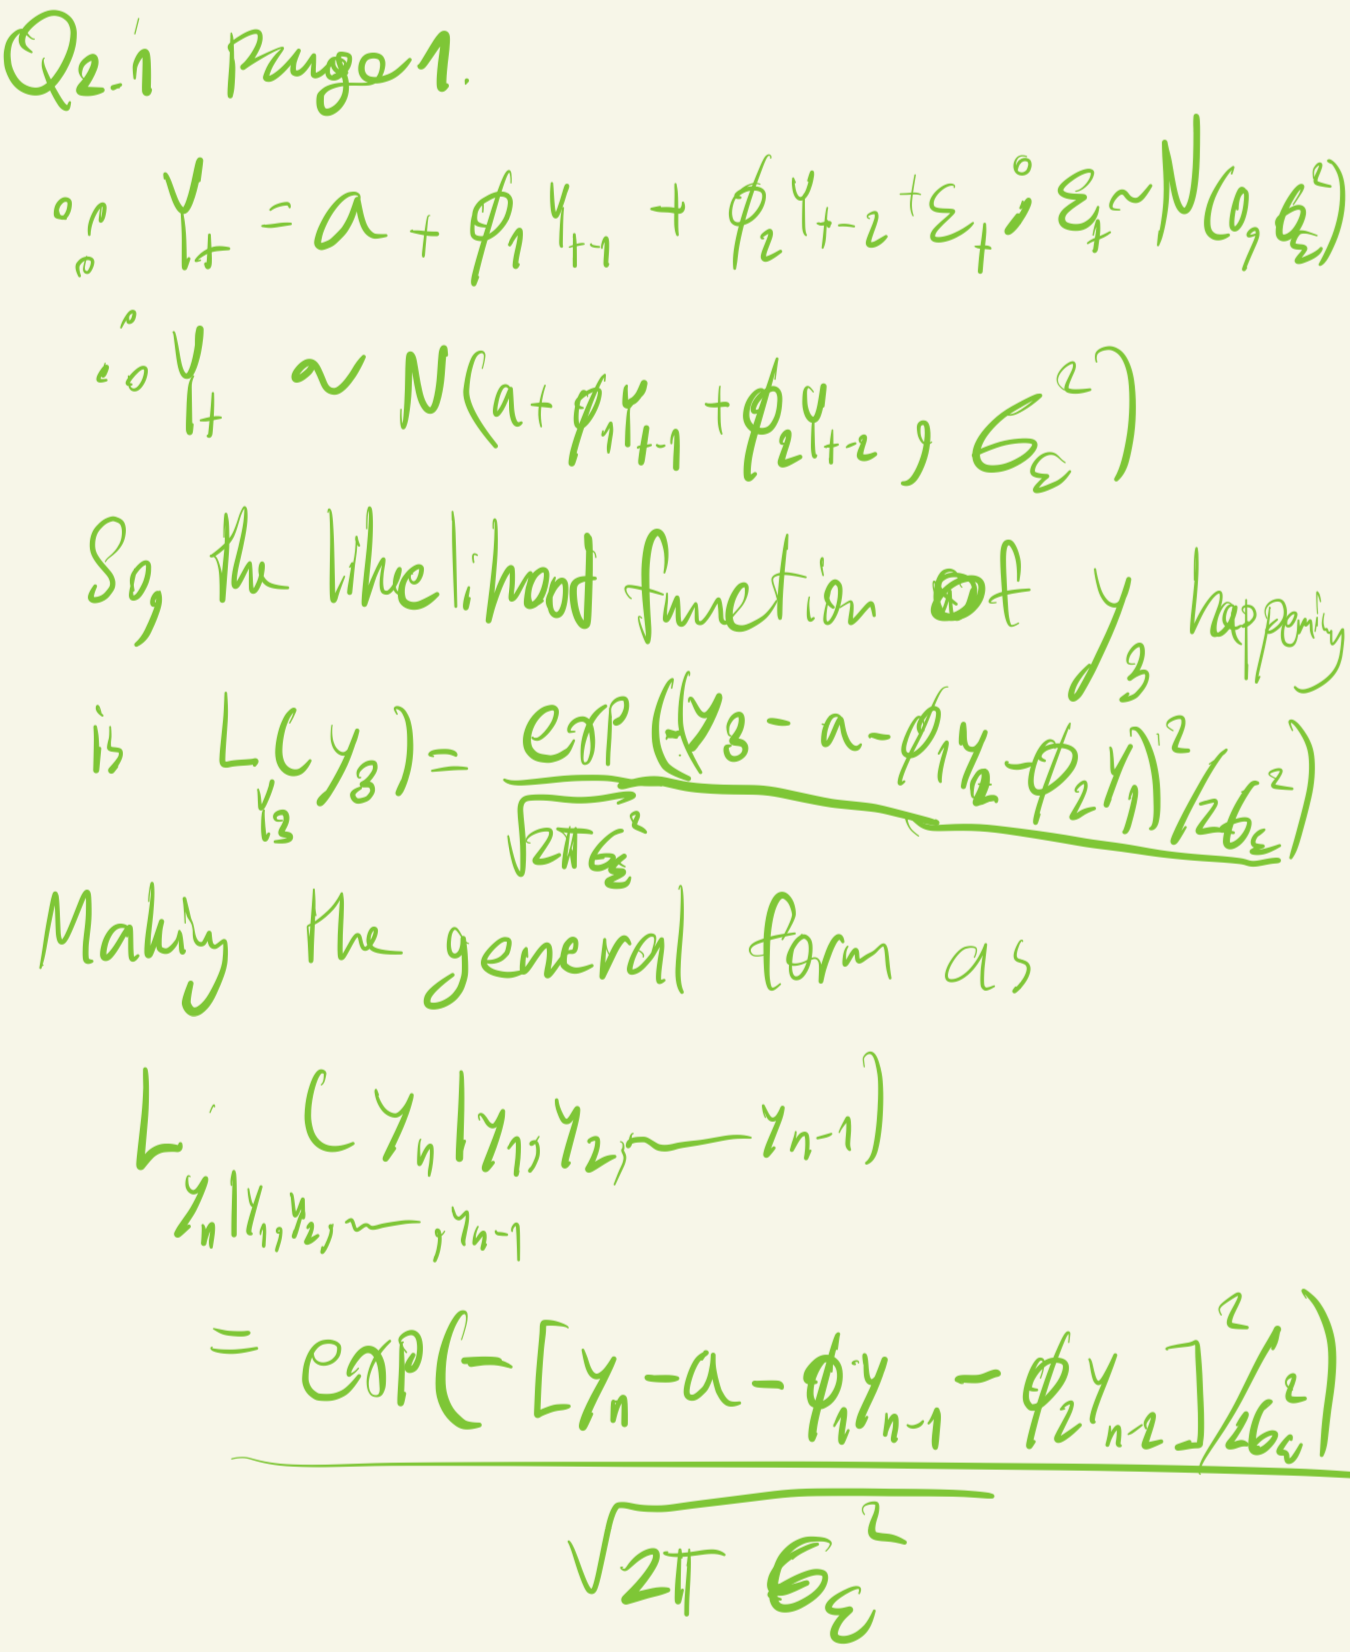 Q2.1 Page 1.
∵ Y_t = a + ϕ_1 Y_{t-1} + ϕ_2 Y_{t-2} + ε_t ; ε_t ~ N(0, σ_ε^2)
∴ Y_t ~ N(a + ϕ_1 Y_{t-1} + ϕ_2 Y_{t-2} , σ_ε^2)
So, the likelihood function of y_3 happening
is L_{Y_3}(y_3) = exp(-(y_3 - a - ϕ_1 y_2 - ϕ_2 y_1)^2 / 2σ_ε^2)
√(2π σ_ε^2)
Making the general form as
L (y_n | y_1, y_2, — y_{n-1})
y_n | y_1, y_2, — , y_{n-1}
= exp(- [y_n - a - ϕ_1 y_{n-1} - ϕ_2 y_{n-2}]^2 / 2σ_ε^2)
√(2π σ_ε^2)